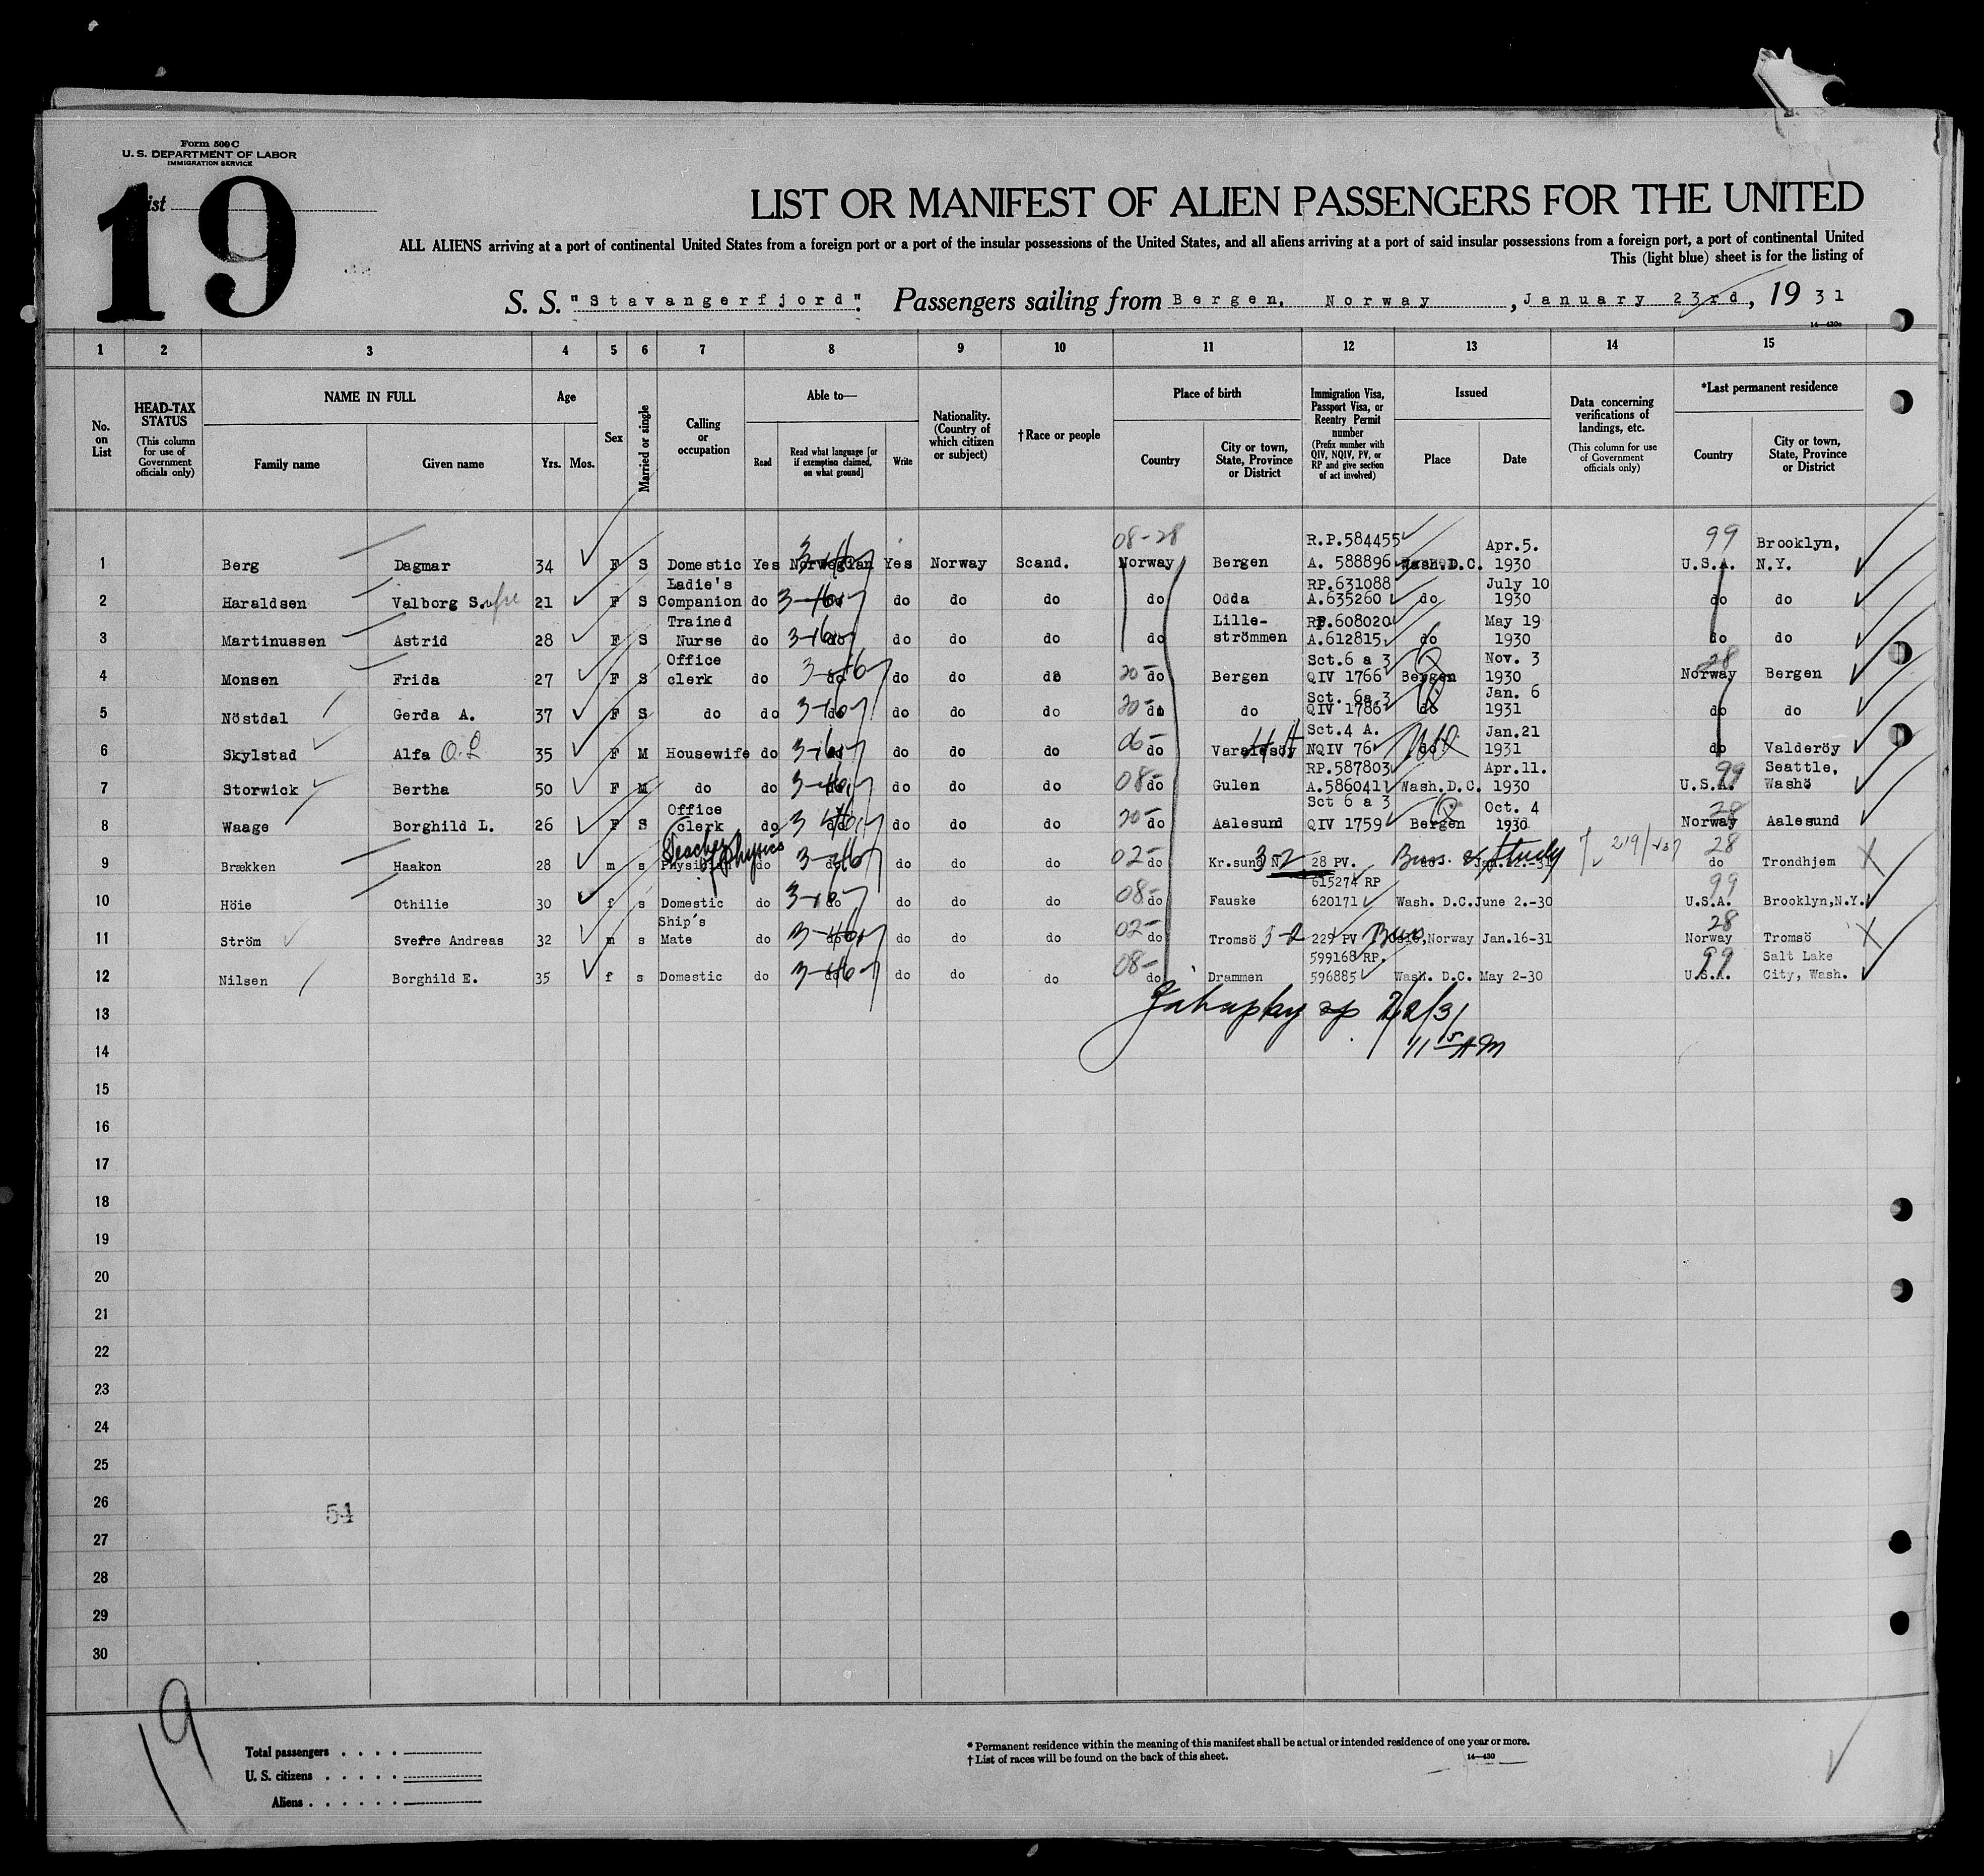 Form 500 C
U. S. DEPARTMENT OF LABOR
IMMIGRATION SERVICE
19
List
LIST OR MANIFEST OF ALIEN PASSENGERS FOR THE UNITED
ALL ALIENS arriving at a port of continental United States from a foreign port or a port of the insular possessions of the United States, and all aliens arriving at a port of said insular possessions from a foreign port, a port of continental United
This (light blue) sheet is for the listing of
S. S. "Stavangerfjord". Passengers sailing from Bergen, Norway, January 23rd, 1931
14—430a
1 2 3 4 5 6 7 8 9 10 11 12 13 14 15
No. on List
HEAD-TAX STATUS (This column for use of Government officials only)
NAME IN FULL
Family name Given name
Age
Yrs. Mos.
Sex
Married or single
Calling or occupation
Able to—
Read Read what language [or if exemption claimed, on what ground] Write
Nationality. (Country of which citizen or subject)
†Race or people
Place of birth
Country City or town, State, Province or District
Immigration Visa, Passport Visa, or Reentry Permit number (Prefix number with QIV, NQIV, PV, or RP and give section of act involved)
Issued
Place Date
Data concerning verifications of landings, etc. (This column for use of Government officials only)
*Last permanent residence
Country City or town, State, Province or District
08-28 R.P.584455 Apr.5. 99 Brooklyn,
1 Berg Dagmar 34 F S Domestic Yes Norwegian Yes Norway Scand. Norway Bergen A. 588896 Wash.D.C. 1930 U.S.A. N.Y.
Ladie's RP.631088 July 10
2 Haraldsen Valborg S. 21 F S Companion do do do do do do Odda A.635260 do 1930 do do
Trained Lille- RP.608020 May 19
3 Martinussen Astrid 28 F S Nurse do do do do do do strömmen A.612815 do 1930 do do
Office Sct.6 a 3 Nov. 3 28
4 Monsen Frida 27 F S clerk do do do do do 20- do Bergen QIV 1766 Bergen 1930 Norway Bergen
Sct. 6a.3 Jan. 6
5 Nöstdal Gerda A. 37 F S do do do do do do 20- do do QIV 1786 do 1931 do do
Sct.4 A. Jan.21
6 Skylstad Alfa O.L 35 F M Housewife do do do do do 06- do NQIV 76 do 1931 do Valderöy
RP.587803 Apr.11. 99 Seattle,
7 Storwick Bertha 50 F M do do do do do do 08- do Gulen A.586041 Wash.D.C. 1930 U.S.A. Washö
Office Sct 6 a 3 Oct. 4 28
8 Waage Borghild L. 26 F S clerk do do do do do 20- do Aalesund QIV 1759 Bergen 1930 Norway Aalesund
Teacher of physics Buss. & Study 28
9 Brækken Haakon 28 m s do do do do do 02- do Kr.sund N 3-2 28 PV. Jan.22.-31 do Trondhjem
615274 RP 99
10 Höie Othilie 30 f s Domestic do do do do do 08- do Fauske 620171 Wash. D.C. June 2.-30 U.S.A. Brooklyn,N.Y.
Ship's 28
11 Ström Sverre Andreas 32 m s Mate do do do do do 02- do Tromsö 3-2 229 PV Bus Oslo,Norway Jan.16-31 Norway Tromsö
599168 RP. 99 Salt Lake
12 Nilsen Borghild E. 35 f s Domestic do do do do do 08- do Drammen 596885 Wash. D.C. May 2-30 U.S.A. City, Wash.
13 2/2/31
14 11 15 AM
15
16
17
18
19
20
21
22
23
24
25
26
54
27
28
29
30
19
Total passengers . . . .
U. S. citizens . . . . .
Aliens . . . . . .
* Permanent residence within the meaning of this manifest shall be actual or intended residence of one year or more.
† List of races will be found on the back of this sheet. 14—430